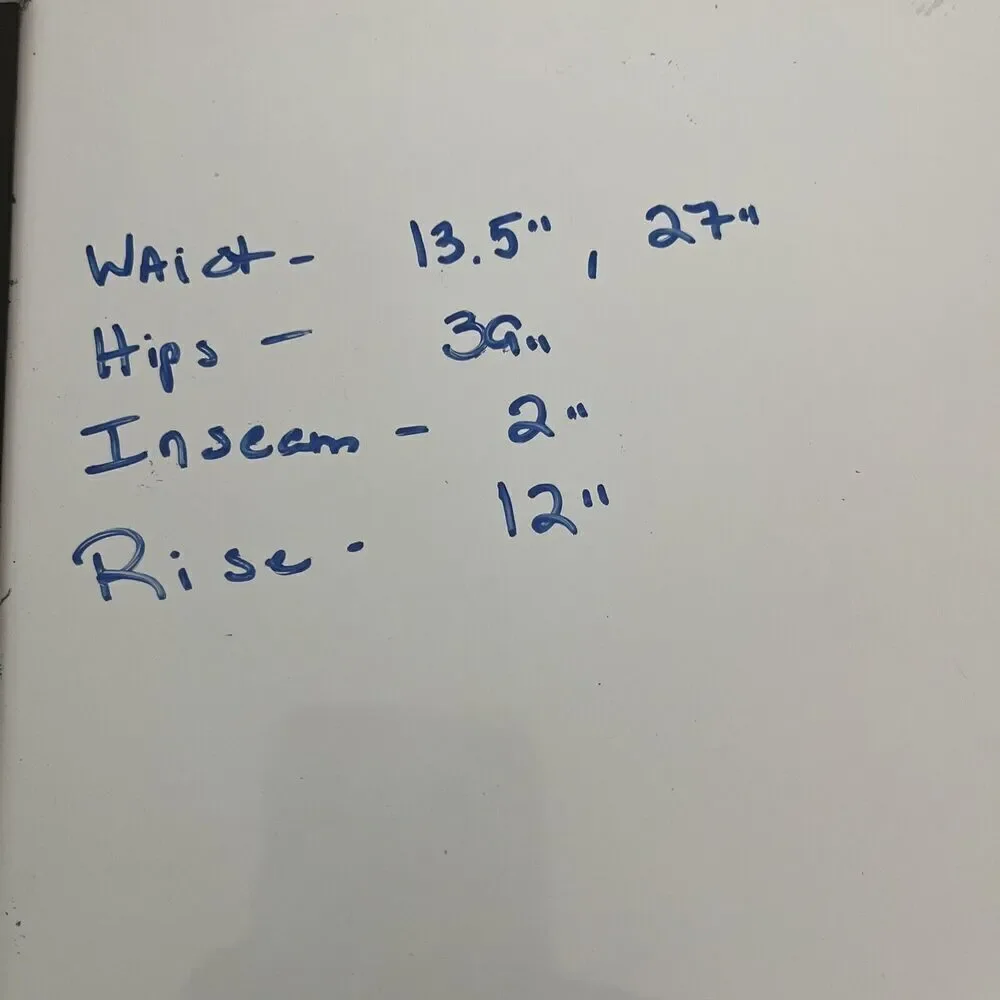 WAist - 13.5", 27"
Hips - 39"
Inseam - 2"
Rise - 12"